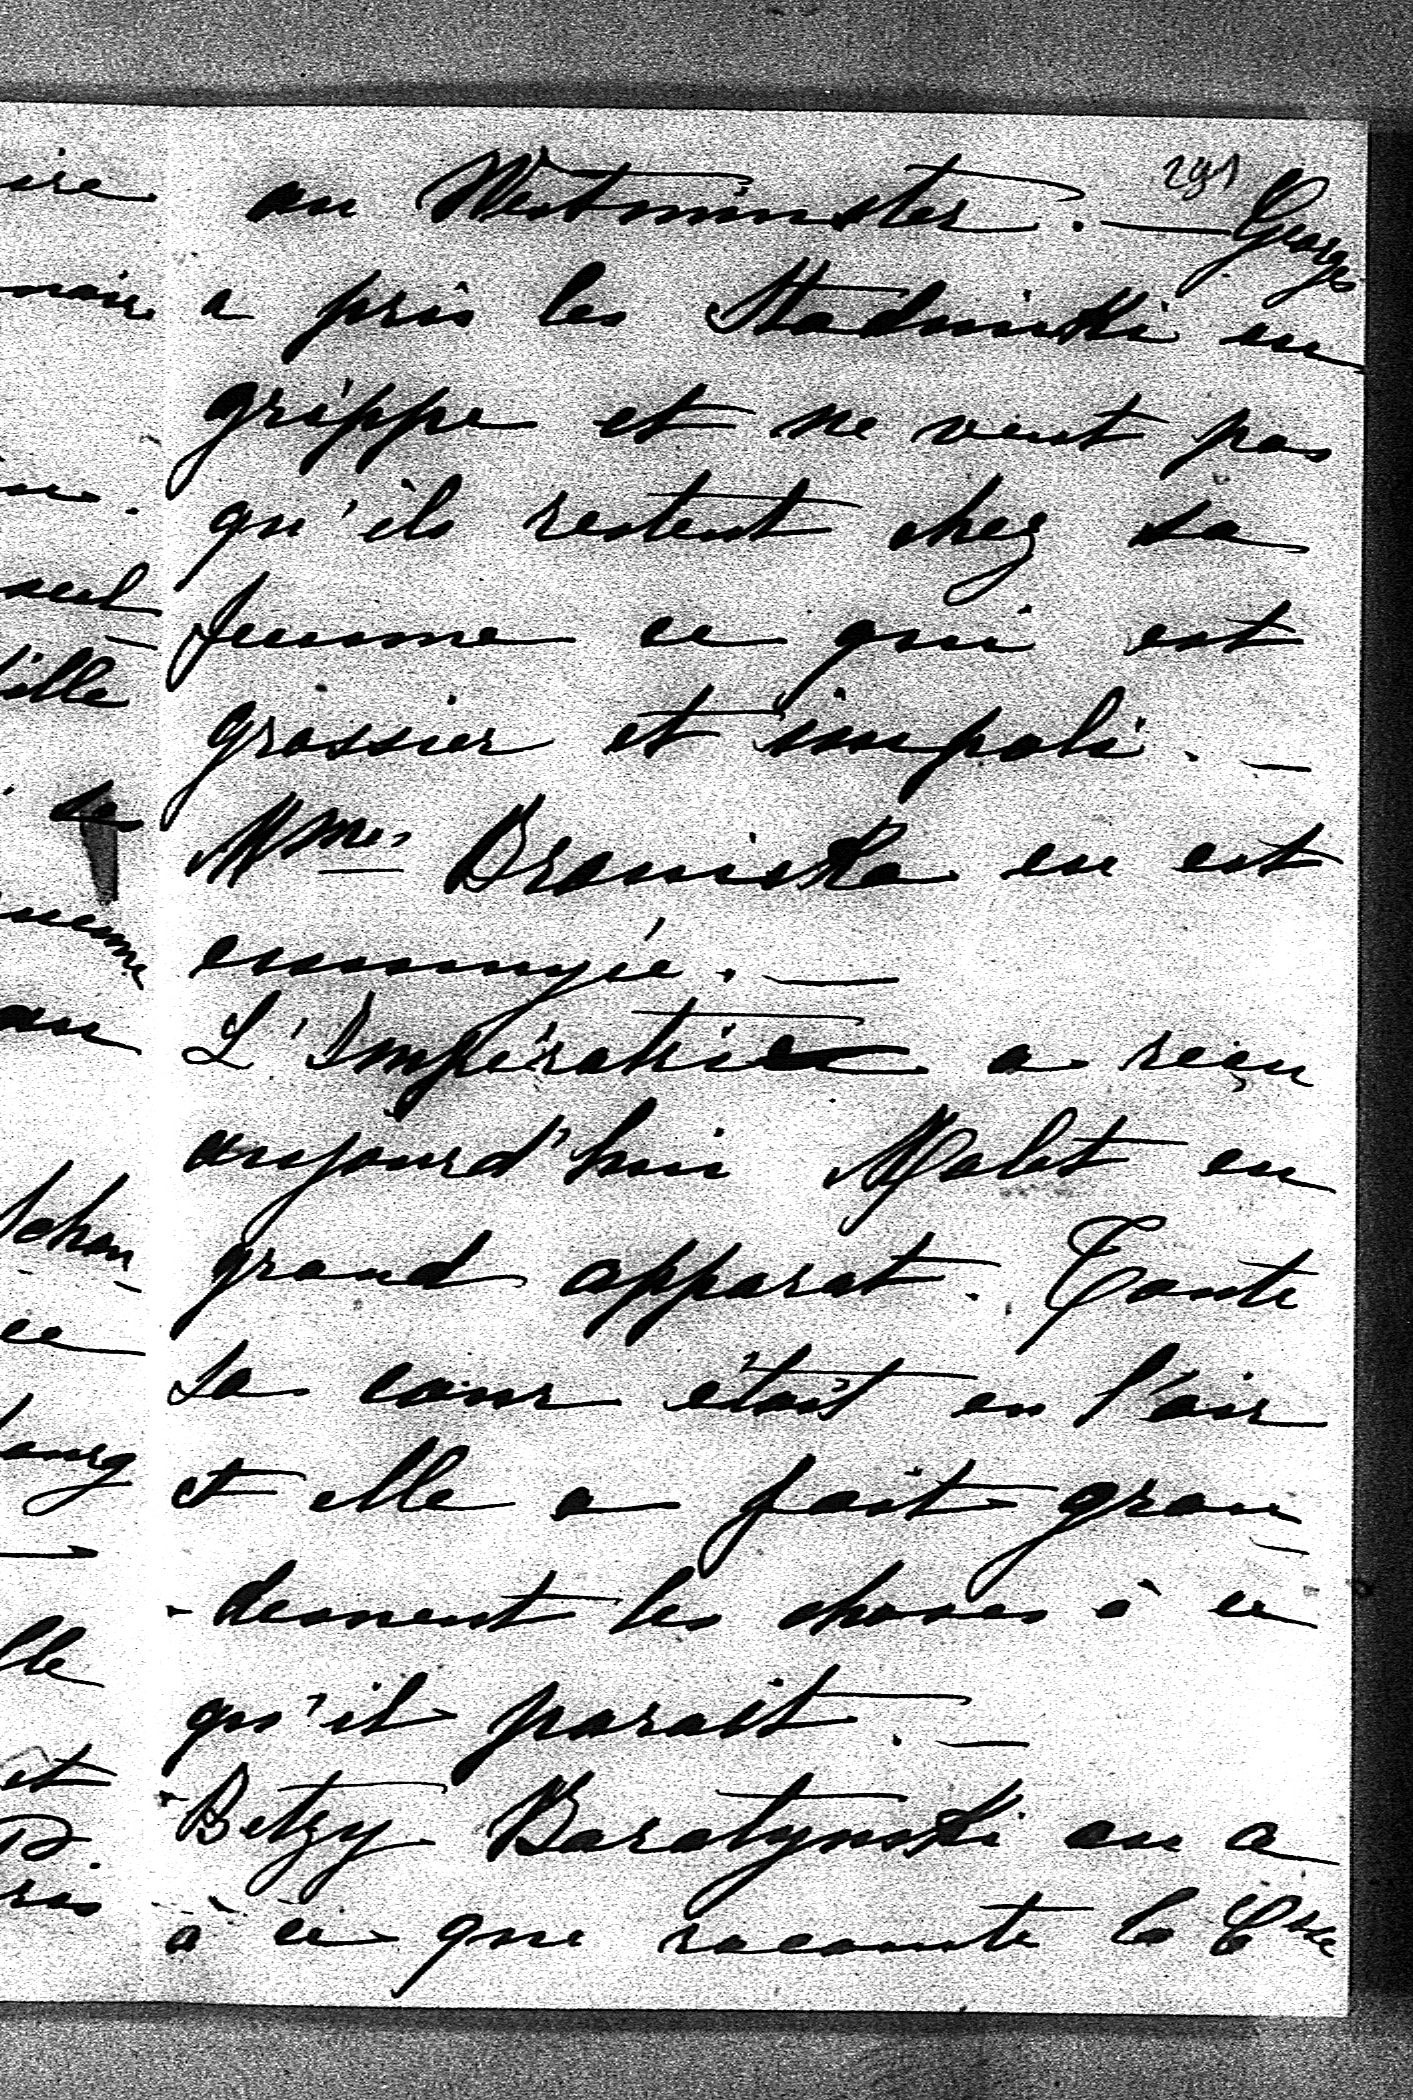 291
au Westminster. — Georges
a pris les Stadnitki en
grippe et ne veut pas
qu'ils restent chez sa
femme ce qui est
grossier et impoli. —
Mme Braniska en est
ennuyée. —
L'Impératrice a reçu
aujourd'hui Malet en
grand apparat. Toute
sa cour était en l'air
et elle a fait gran
-dement les choses à ce
qu'il parait. —
Betzy Baratynski en a
à ce que raconte la Csse